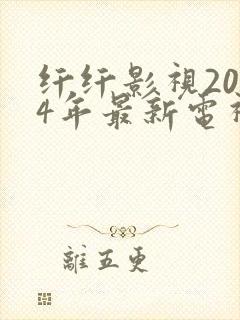 纤纤影視20
4年最新電視
離五更